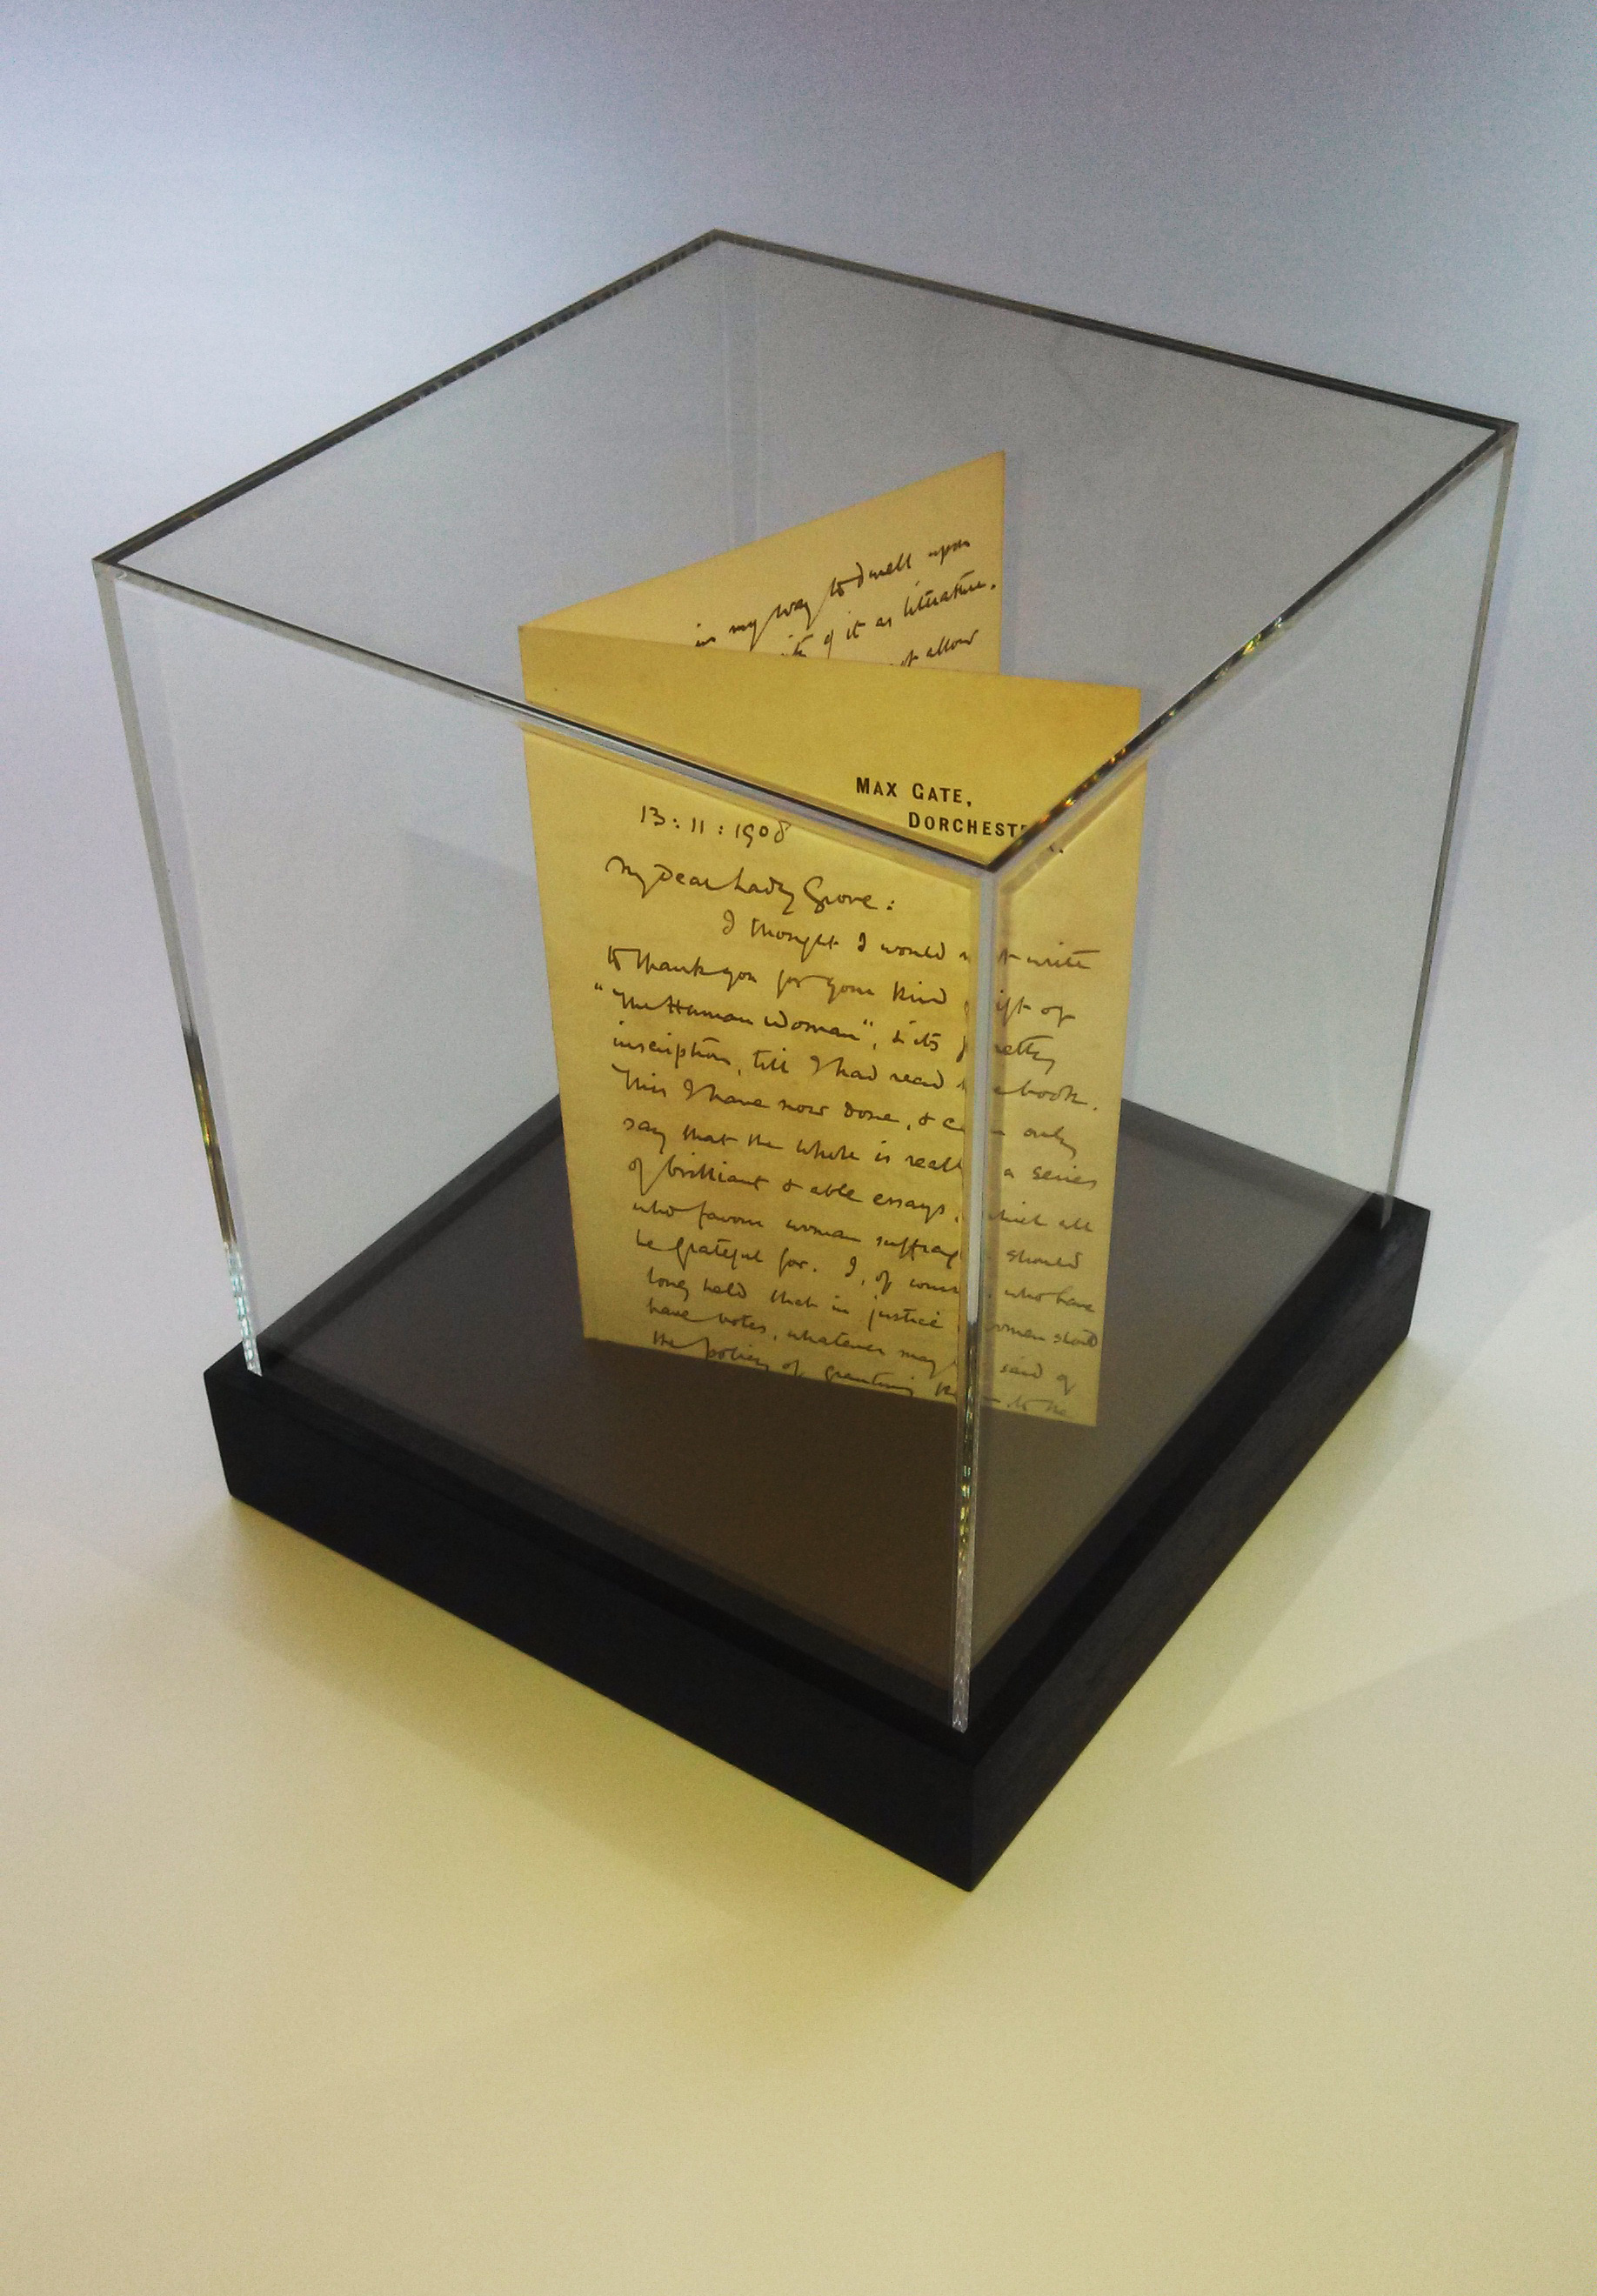 in my way to dwell upon
of it as literature.
allow
MAX GATE,
DORCHEST
13:11:1908
My Dear Lady Grove:
I thought I would not write
to thank you for your kind gift of
"The Human Woman", & its pretty
inscription, till I had read the book.
This I have now done, & can only
say that the whole is really a series
of brilliant & able essays, which all
who favour woman suffrage should
be grateful for. I, of course, who have
long held that in justice women should
have votes, whatever may be said of
the policy of granting them to the